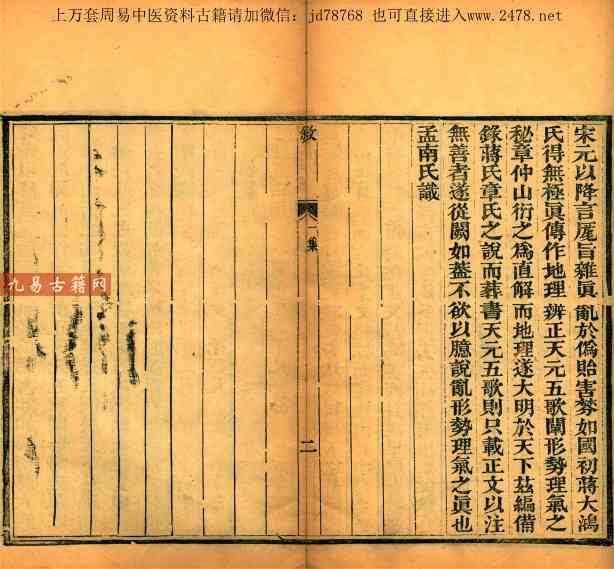 上万套周易中医资料古籍请加微信：jd78768 也可直接进入www.2478.net
宋元以降言厖旨雜眞亂於偽貽害棼如國初蔣大鴻
氏得無極眞傳作地理辨正天元五歌闡形勢理氣之
秘章仲山衍之爲直解而地理遂大明於天下茲編備
錄蔣氏章氏之說而葬書天元五歌則只載正文以注
無善者遂從闕如葢不欲以臆說亂形勢理氣之眞也
孟南氏識
敘
一集
二
九易古籍网